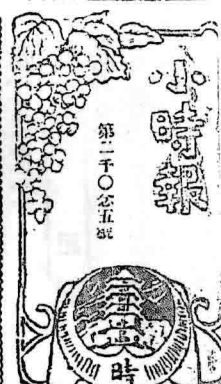 小時報
第二千〇念五號
時